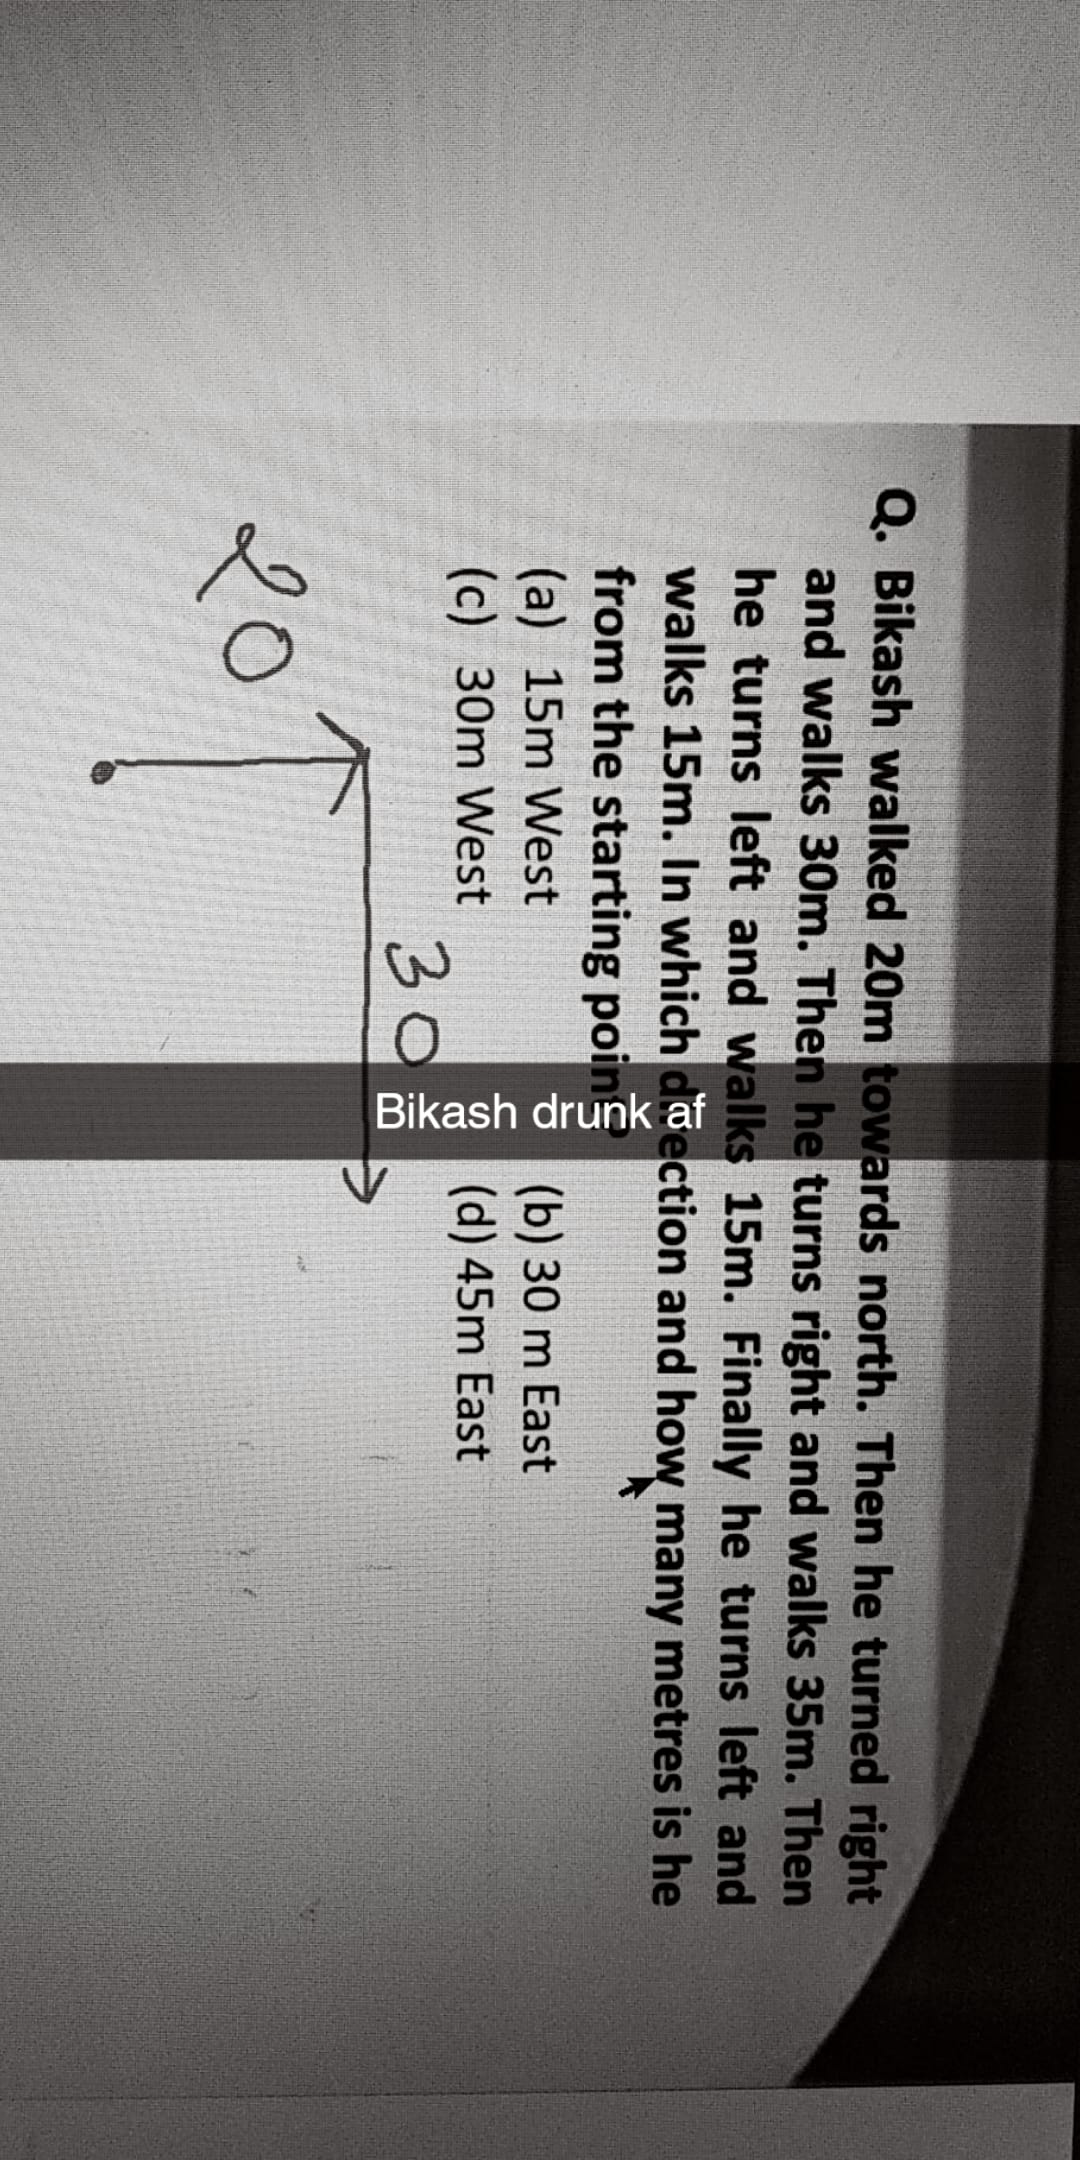 Q. Bikash walked 20m towards north. Then he turned right
and walks 30m. Then he turns right and walks 35m. Then
he turns left and walks 15m. Finally he turns left and
walks 15m. In which direction and how many metres is he
from the starting point?
(a) 15m West (b) 30 m East
(c) 30m West (d) 45m East
30
20
Bikash drunk af